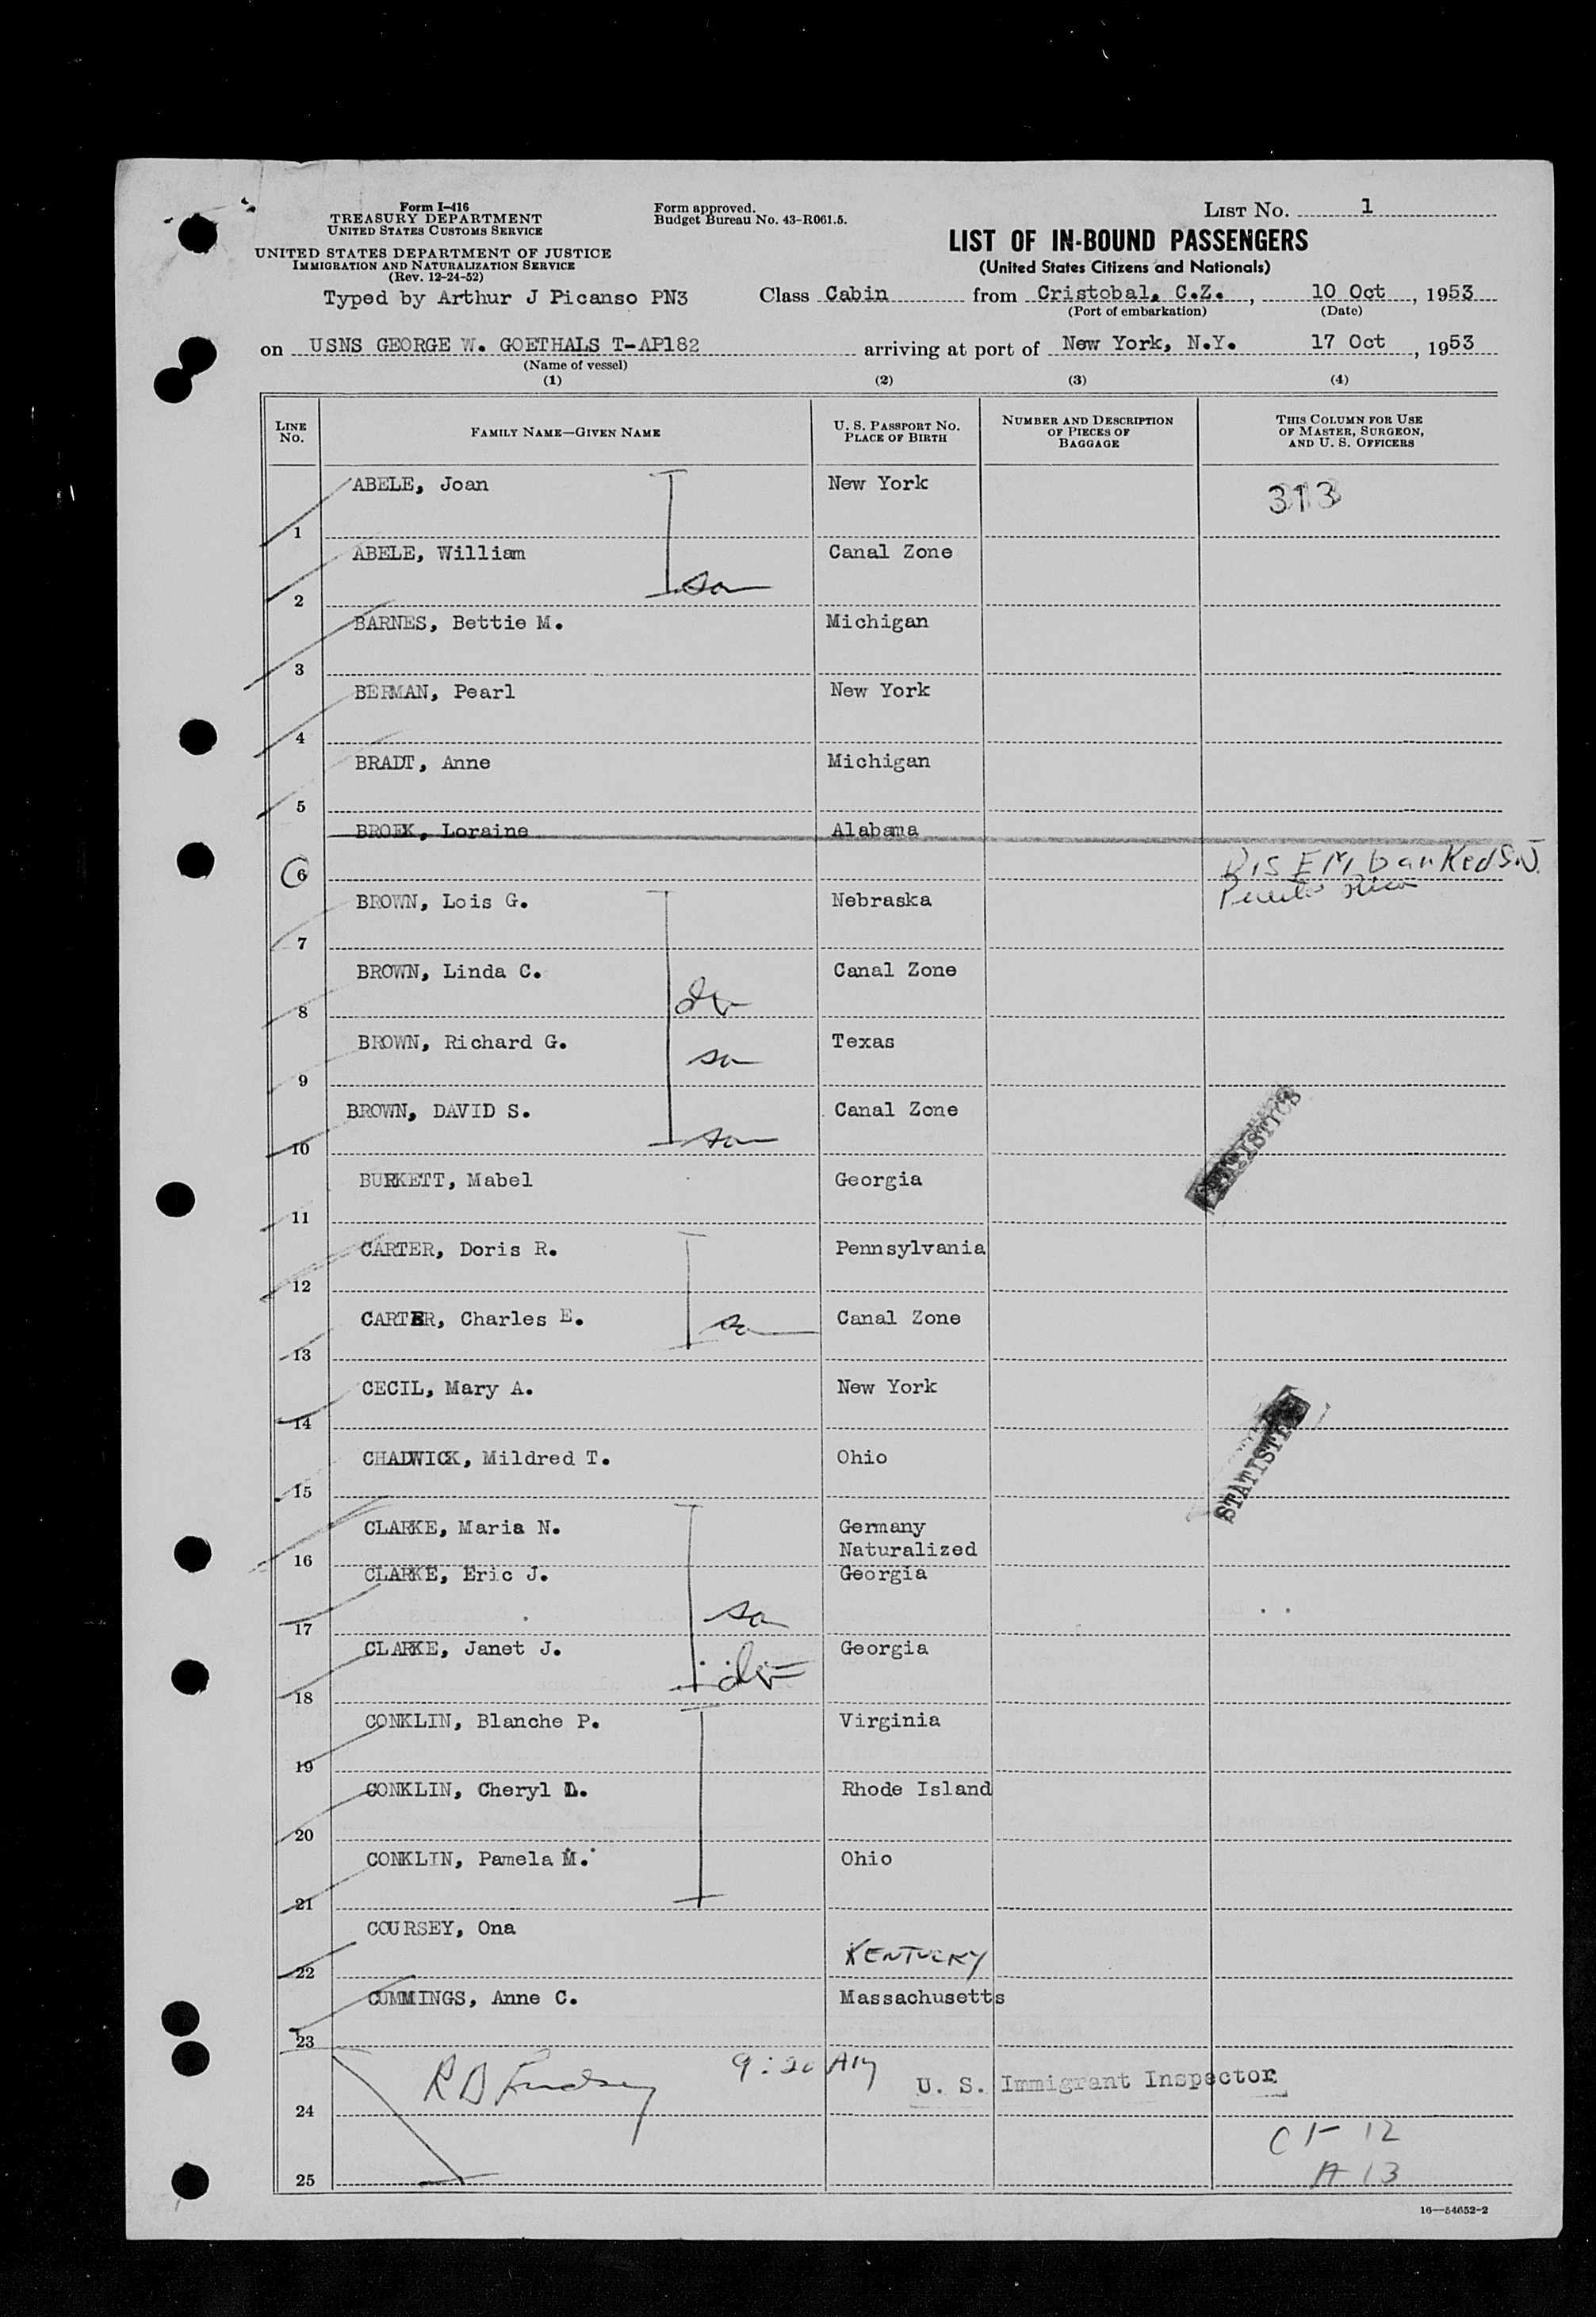 Form I-416
TREASURY DEPARTMENT
UNITED STATES CUSTOMS SERVICE
UNITED STATES DEPARTMENT OF JUSTICE
IMMIGRATION AND NATURALIZATION SERVICE
(Rev. 12-24-52)
Form approved.
Budget Bureau No. 43-R061.5.
LIST No. 1
LIST OF IN-BOUND PASSENGERS
(United States Citizens and Nationals)
Typed by Arthur J Picanso PN3 Class Cabin from Cristobal, C.Z., 10 Oct, 1953
(Port of embarkation) (Date)
on USNS GEORGE W. GOETHALS T-AP182 arriving at port of New York, N.Y. 17 Oct, 1953
(Name of vessel)
(1) (2) (3) (4)
LINE No. FAMILY NAME—GIVEN NAME U. S. PASSPORT NO. PLACE OF BIRTH NUMBER AND DESCRIPTION OF PIECES OF BAGGAGE THIS COLUMN FOR USE OF MASTER, SURGEON, AND U. S. OFFICERS
1 ABELE, Joan New York 313
2 ABELE, William Canal Zone
son
3 BARNES, Bettie M. Michigan
4 BERMAN, Pearl New York
5 BRADT, Anne Michigan
6 BROEK, Loraine Alabama
DISEMbarKed S.J.
Puerto Rico
7 BROWN, Lois G. Nebraska
8 BROWN, Linda C. Canal Zone
9 BROWN, Richard G. Texas
son
10 BROWN, DAVID S. Canal Zone
son
STATISTICS
11 BURKETT, Mabel Georgia
12 CARTER, Doris R. Pennsylvania
13 CARTER, Charles E. Canal Zone
14 CECIL, Mary A. New York
15 CHADWICK, Mildred T. Ohio
STATISTICS
16 CLARKE, Maria N. Germany
Naturalized
17 CLARKE, Eric J. Georgia
son
18 CLARKE, Janet J. Georgia
19 CONKLIN, Blanche P. Virginia
20 CONKLIN, Cheryl L. Rhode Island
21 CONKLIN, Pamela M. Ohio
22 COURSEY, Ona KENTUCKY
23 CUMMINGS, Anne C. Massachusetts
9:20 AM
U. S. Immigrant Inspector
24
25
12
A 13
16—54652-2